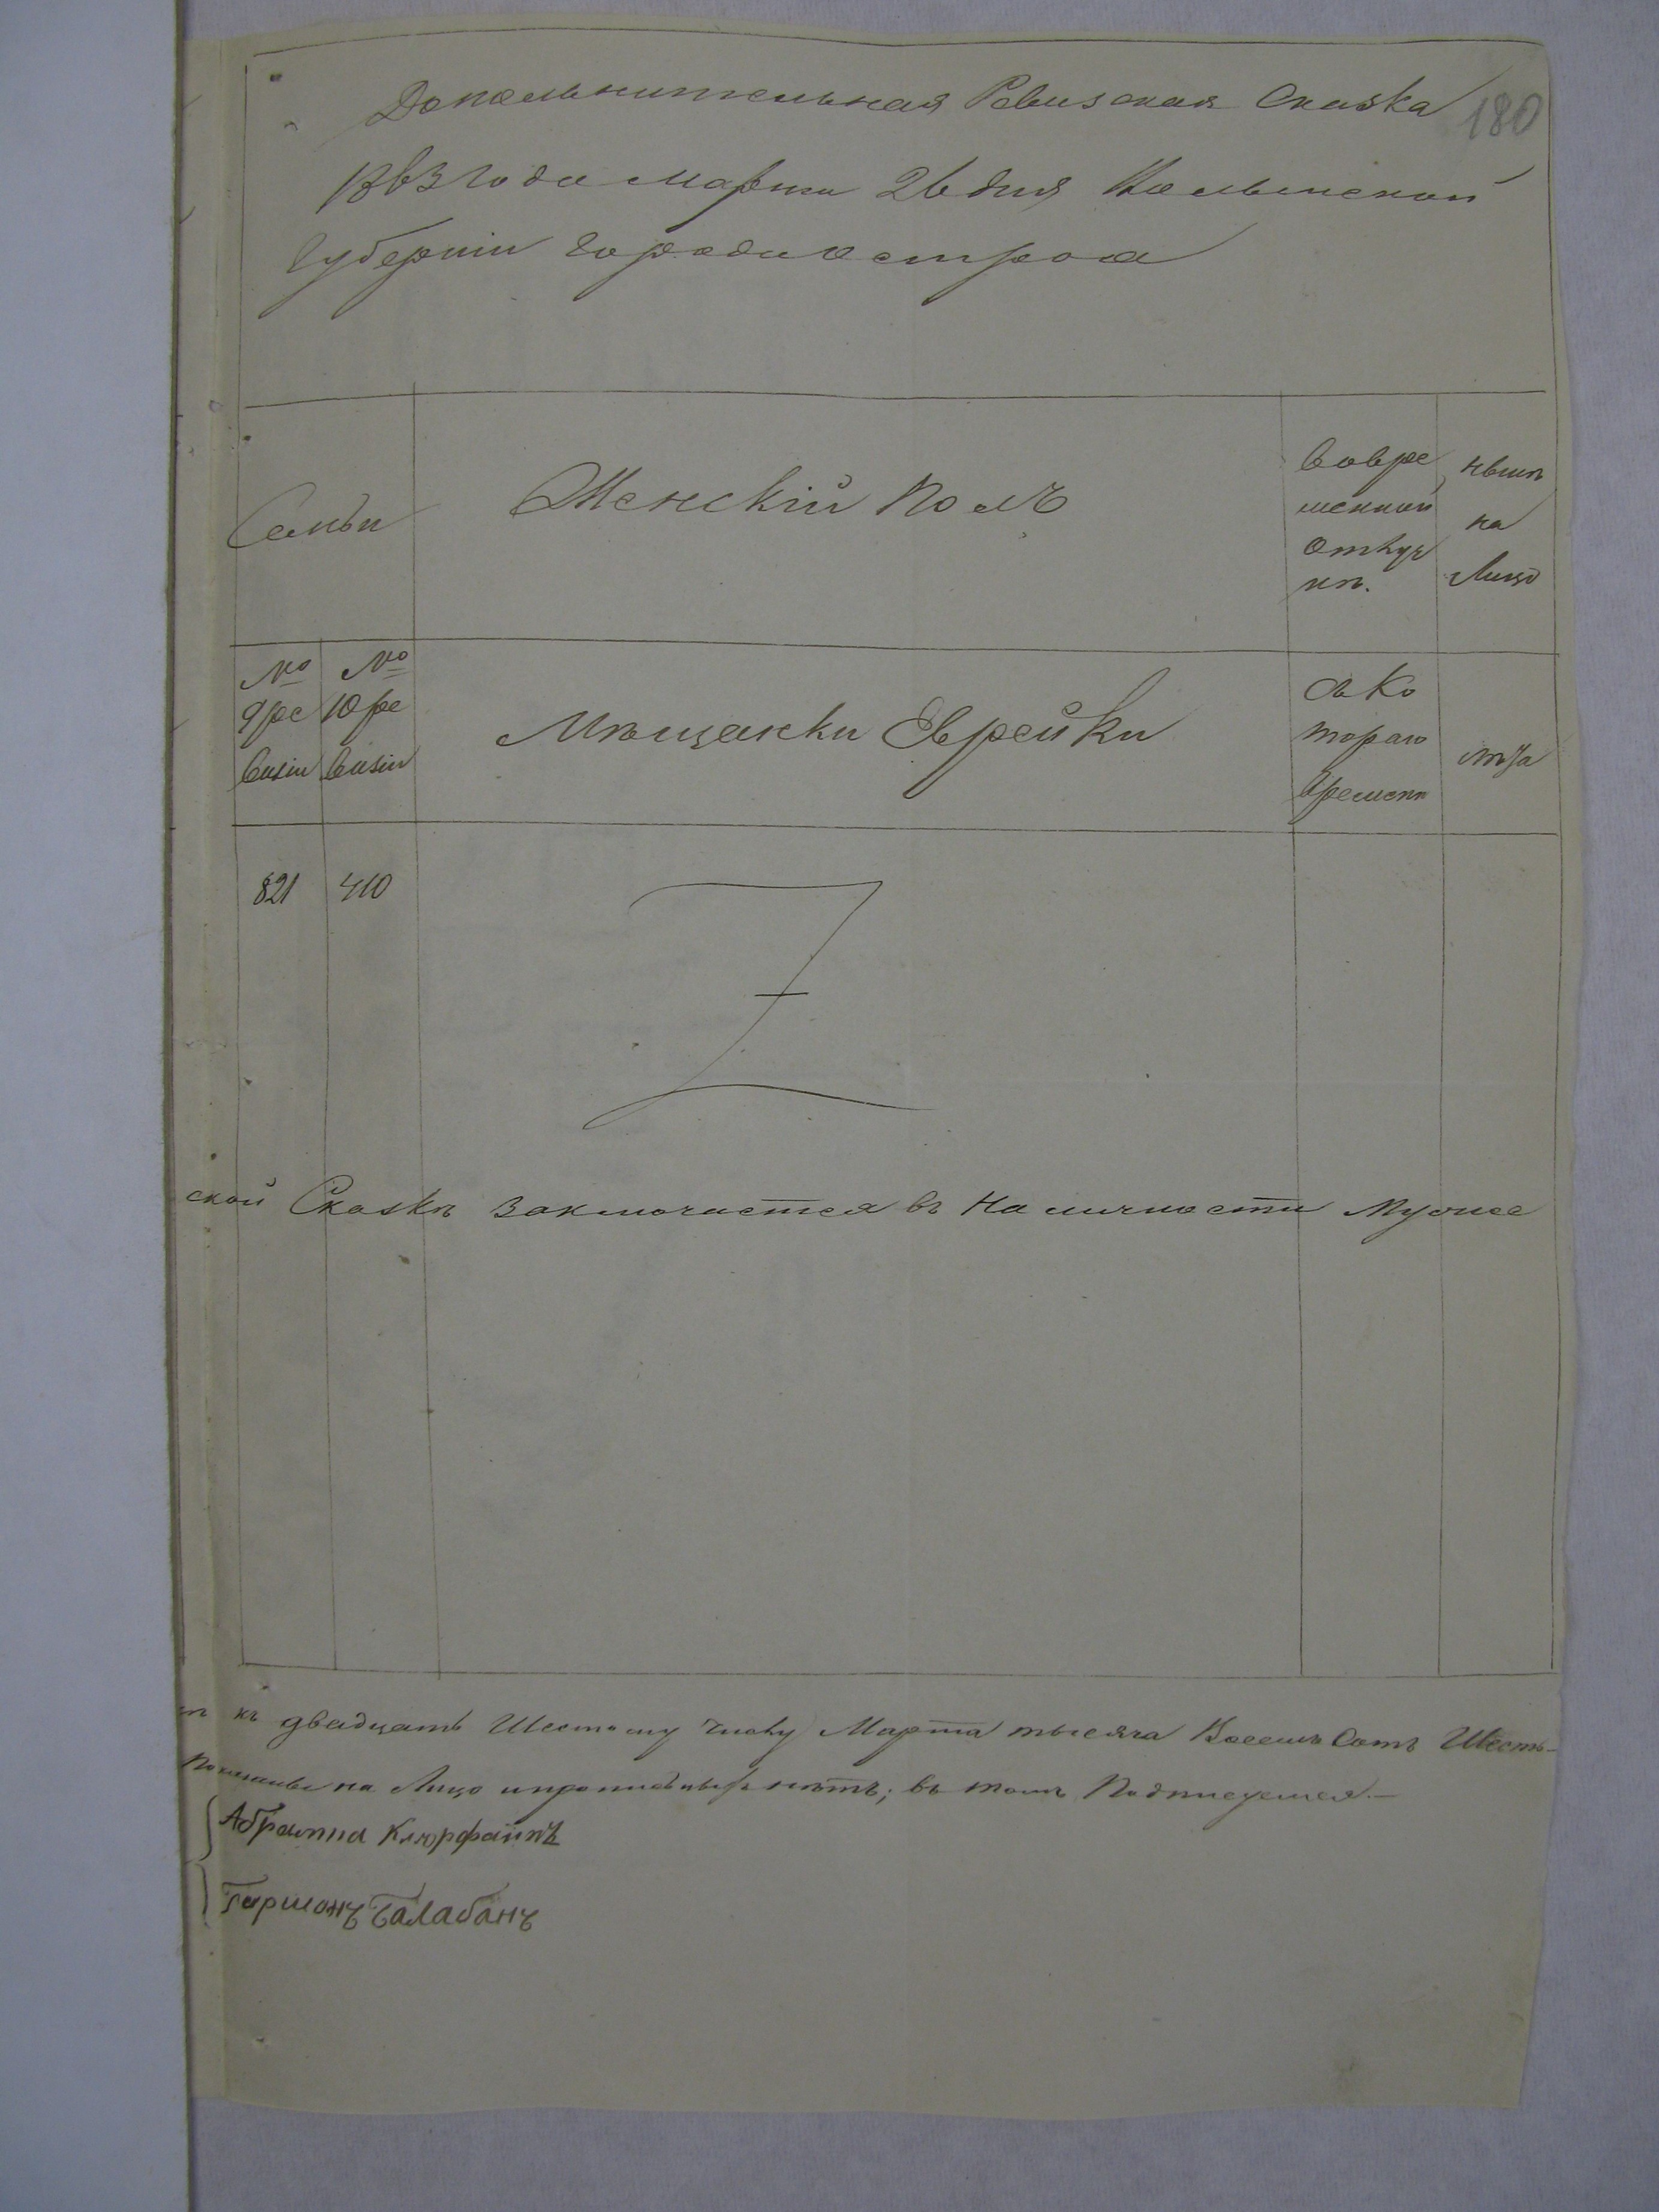 Дополнительная Ревизская Сказка
180
1863 года Марта 26 дня Волынской
Губернiи города Острога
Семьи
Женскiй полъ
во вре
менной
отлуч
кѣ.
нынѣ
на
Лицо
№
9 ре
визiи
№
10 ре
визiи
Мѣщанки Еврейки
съ ко
тораго
времени
лѣта
821 410
ской Сказкѣ заключается въ наличности Мужес
къ двадцать Шестому числу Марта тысяча Восемь Сотъ Шесть-
на Лицо и прописныхъ нѣтъ; въ томъ Подписуемся.—
Клюрфайнъ
Гершонъ Балабанъ